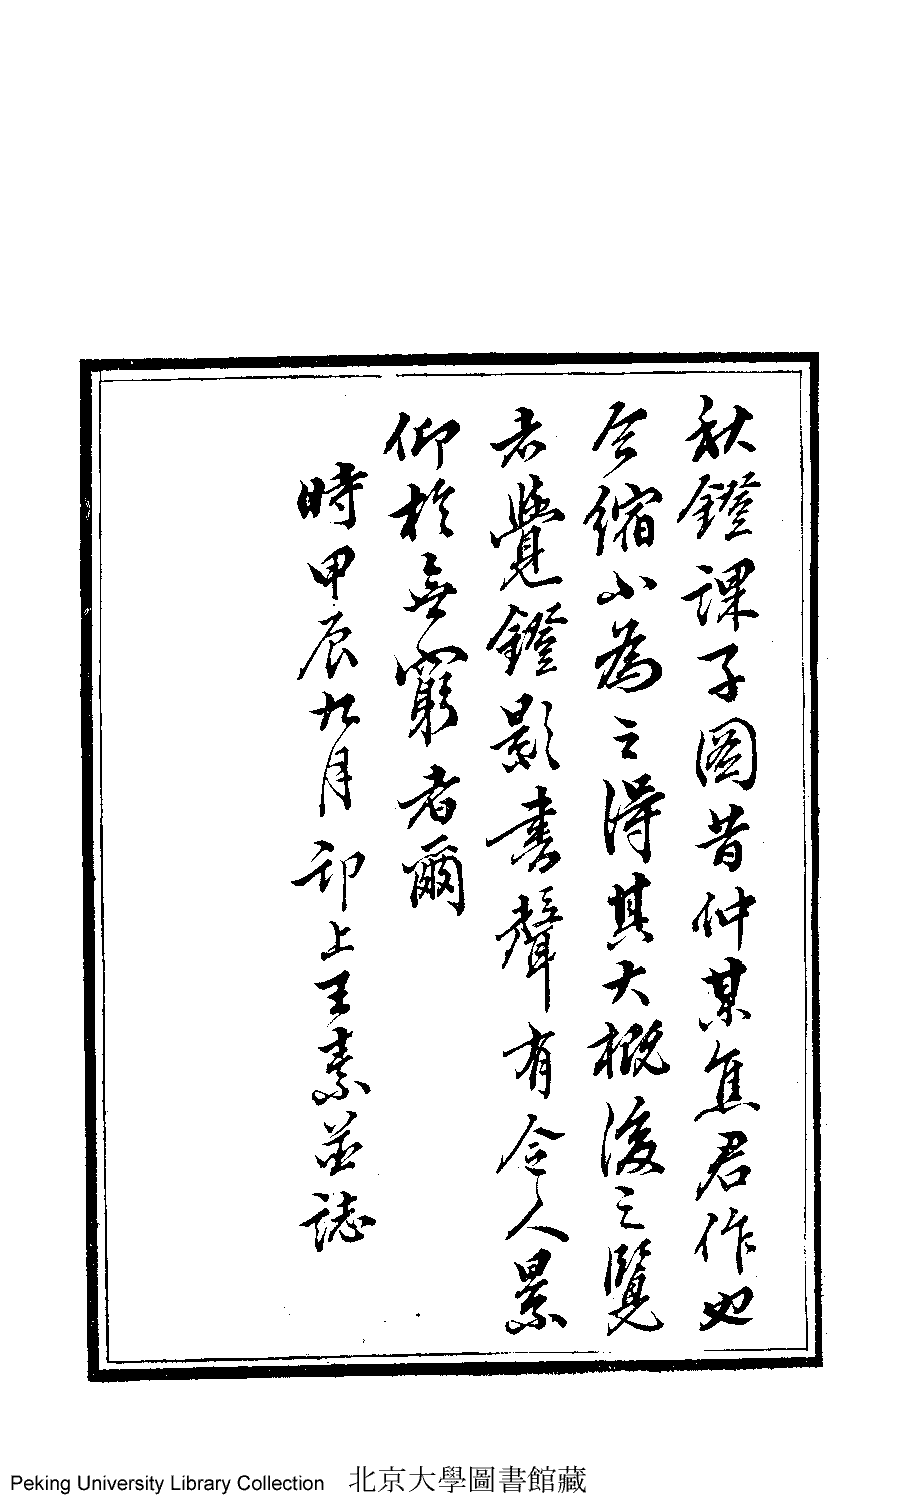 秋鐙課子圖昔仲某焦君作也
今縮小為之得其大概後之覽
者覺鐙影書聲有令人景
仰於無窮者爾
時甲辰九月邗上王素並誌
Peking University Library Collection 北京大學圖書館藏